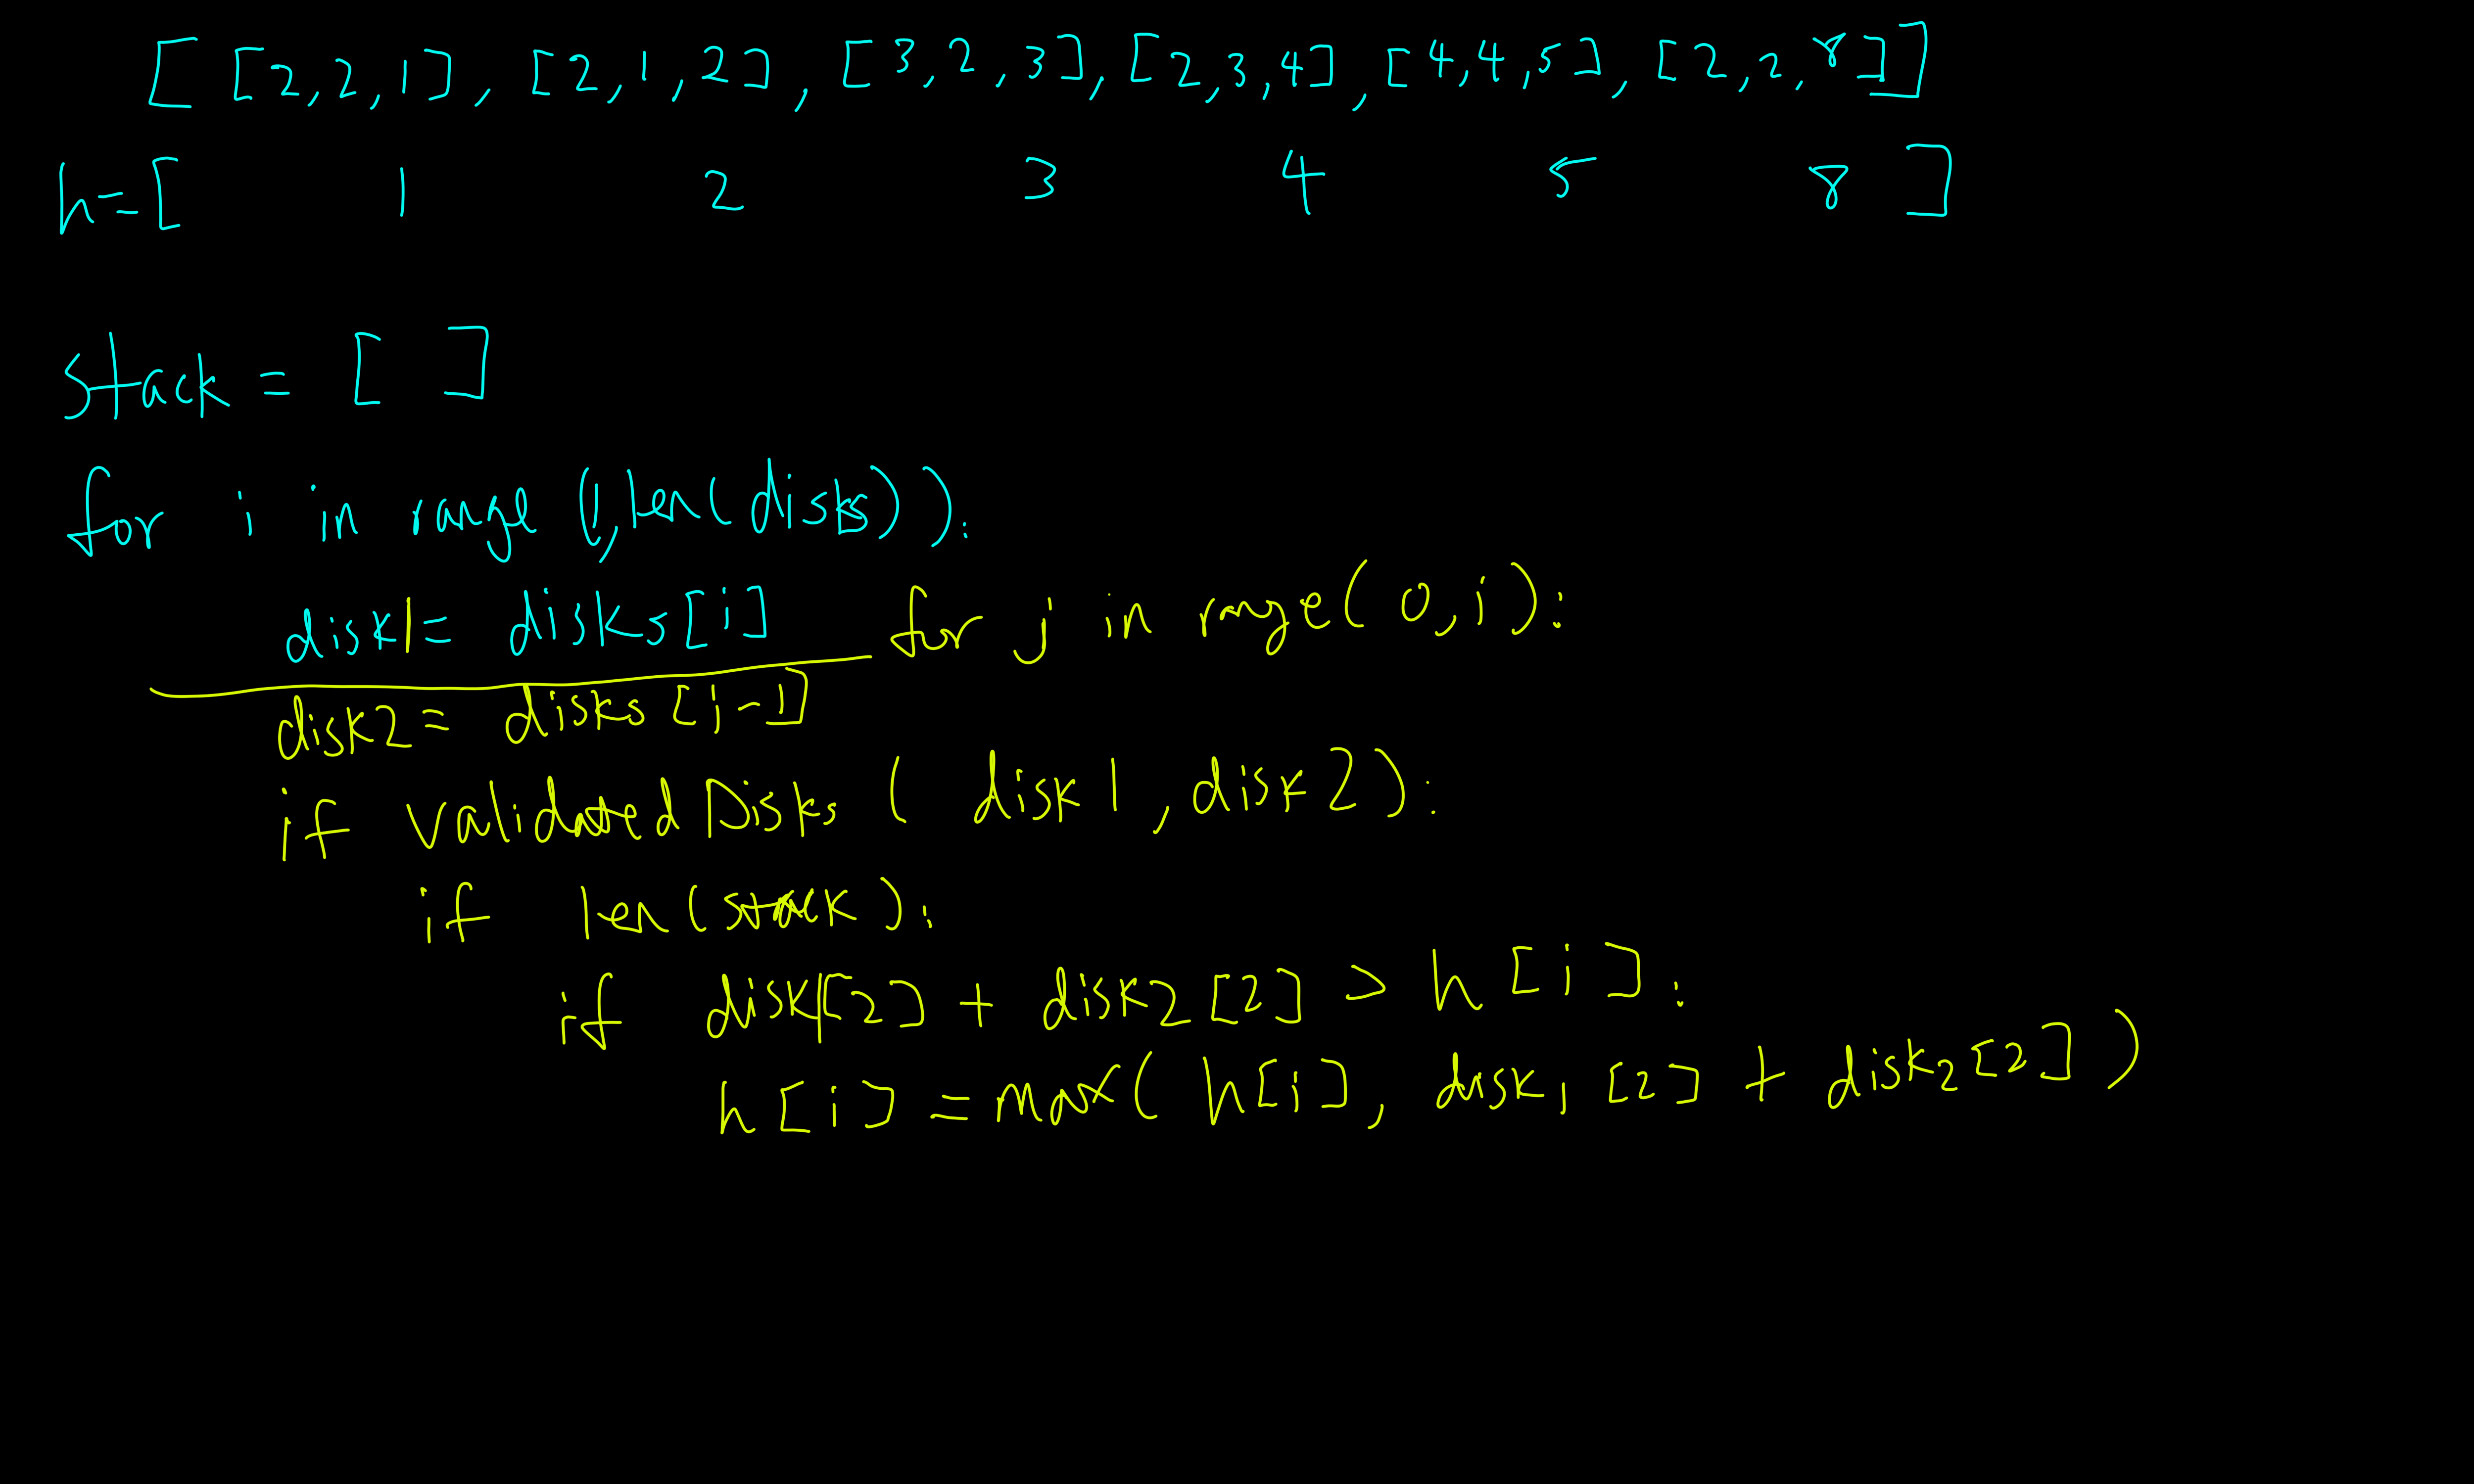 [ [2,2,1], [2,1,2], [3,2,3], [2,3,4], [4,4,5], [2,2,8] ]
h=[ 1 2 3 4 5 8 ]
stack = [ ]
for i in range (1,len(disks)):
disk1= disks[i] for j in range(0,i):
disk2= disks[j-1]
if validatedDisks ( disk1, disk2):
if len(stack):
if disk1[2] + disk2[2] > h[i]:
h[i] =max( h[i], disk1[2] + disk2[2])